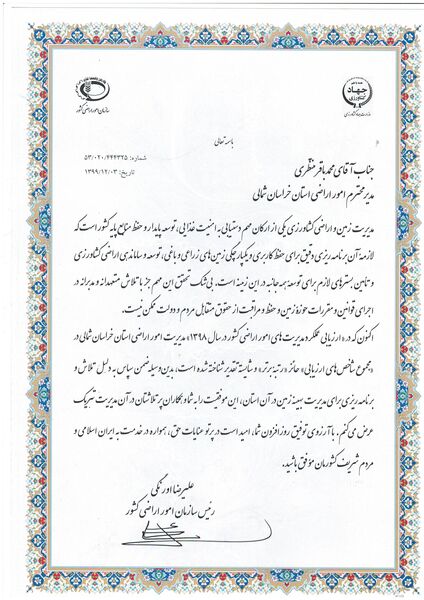 جهاد
وزارت جهاد کشاورزی
سازمان امور اراضی کشور
باسمه تعالی
شماره: ۵۳/۰۲۰/۴۴۴۳۲۵
تاریخ: ۱۳۹۹/۱۲/۰۳
جناب آقای محمدباقر منظری
مدیر محترم امور اراضی استان خراسان شمالی
مدیریت زمین و اراضی کشاورزی یکی از ارکان مهم دستیابی به امنیت غذایی، توسعه پایدار و حفظ منابع پایه کشور است که
لازمه آن برنامه ریزی دقیق برای حفظ کاربری و یکپارچگی زمین های زراعی و باغی، توسعه و ساماندهی اراضی کشاورزی
و تأمین بسترهای لازم برای توسعه همه جانبه در این زمینه است. بی شک تحقق این مهم جز با تلاش متعهدانه و مدبرانه در
اجرای قوانین و مقررات حوزه زمین و حفظ و مراقبت از حقوق متقابل مردم و دولت ممکن نیست.
اکنون که در «ارزیابی عملکرد مدیریت های امور اراضی کشور در سال ۱۳۹۸» مدیریت امور اراضی استان خراسان شمالی در
«مجموع شاخص های ارزیابی» حائز «رتبه برتر» و شایسته تقدیر شناخته شده است، بدین وسیله ضمن سپاس به دلیل تلاش و
برنامه ریزی برای مدیریت بهینه زمین در آن استان، این موفقیت را به شما و همکاران پرتلاشتان در آن مدیریت تبریک
عرض می کنم. با آرزوی توفیق روزافزون شما، امید است در پرتو عنایات حق، همواره در خدمت به ایران اسلامی و
مردم شریف کشورمان موفق باشید.
علیرضا اورنگی
رئیس سازمان امور اراضی کشور